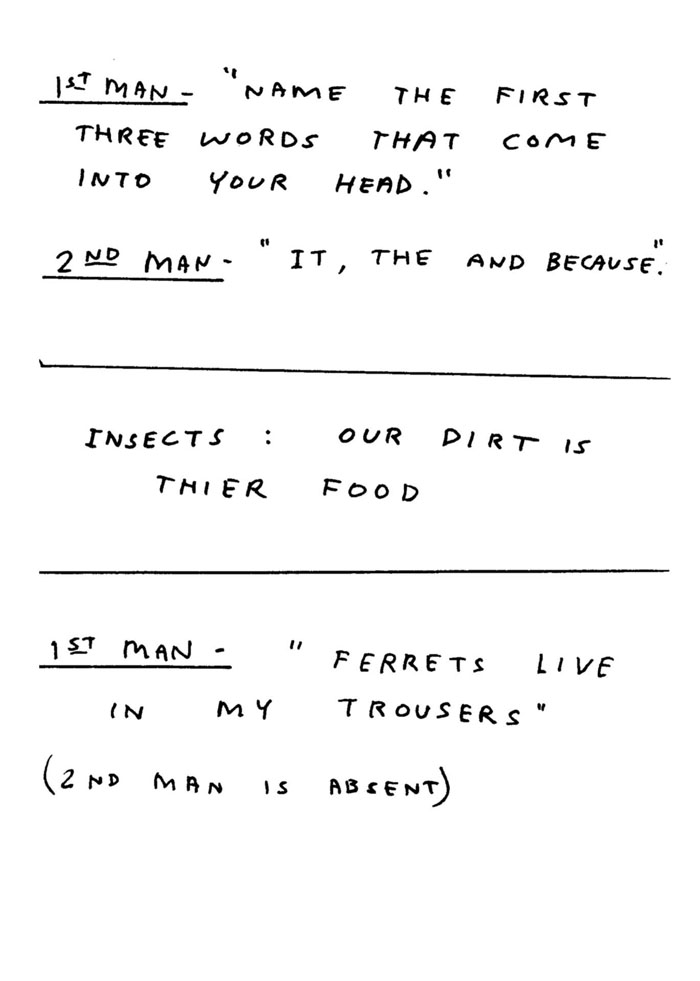 1ST MAN - "NAME THE FIRST
THREE WORDS THAT COME
INTO YOUR HEAD."
2ND MAN - "IT, THE AND BECAUSE".
INSECTS : OUR DIRT IS
THIER FOOD
1ST MAN - "FERRETS LIVE
IN MY TROUSERS"
(2ND MAN IS ABSENT)